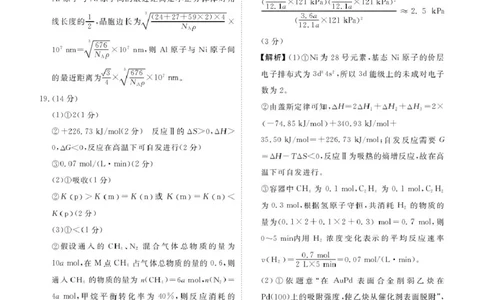 线长度的1/2,晶胞边长为∛((24+27+59×2)×4/(N_Aρ))×
10⁷ nm=∛(676/(N_Aρ))×10⁷ nm,则 Al 原子与 Ni 原子间
的最近距离为√3/4×∛(676/(N_Aρ))×10⁷ nm。
19.(14 分)
(1)①2(1 分)
②+226.73 kJ/mol(2 分) 反应Ⅱ的 ΔS>0,ΔH>
0,ΔG<0,反应在高温下可自发进行(2 分)
③0.07 mol/(L·min)(2 分)
(2)①吸收(1 分)
②K(p)>K(m)=K(n)或 K(m)=K(n)<
K(p)(2 分)
(3)①<(1 分)
②假设通入的 CH₄、N₂ 混合气体总物质的量为
10a mol,在 M 点 CH₄ 占气体总物质的量的 0.6,则
通入 CH₄ 的物质的量为 n(CH₄)=6a mol,n(N₂)=
4a mol,甲烷平衡转化率为 40%,则反应消耗的
≈2.5 kPa
(3.6a/12.1a×121 kPa)²
(3 分)
【解析】(1)①Ni 为 28 号元素,基态 Ni 原子的价层
电子排布式为 3d⁸4s²,所以 3d 能级上的未成对电子
数为 2。
②由盖斯定律可知,ΔH=2ΔH₁+ΔH₂+ΔH₃=2×
(-74.85 kJ/mol)+340.93 kJ/mol+
35.50 kJ/mol=+226.73 kJ/mol;自发反应需要 G
=ΔH-TΔS<0,反应Ⅱ为吸热的熵增反应,故在高
温下可自发进行。
③容器中 CH₄ 为 0.1 mol、C₂H₄ 为 0.1 mol、C₂H₂
为 0.3 mol,根据氢原子守恒,共消耗 H₂ 的物质的
量为(0.1×2+0.1×2+0.3) mol=0.7 mol,则
0~5 min 内用 H₂ 浓度变化表示的平均反应速率
v(H₂)=0.7 mol/(2 L×5 min)=0.07 mol/(L·min)。
(2)①依题意“在 AuPd 表面合金削弱乙炔在
Pd(100)上的吸附强度,使乙炔从催化剂表面脱附”,